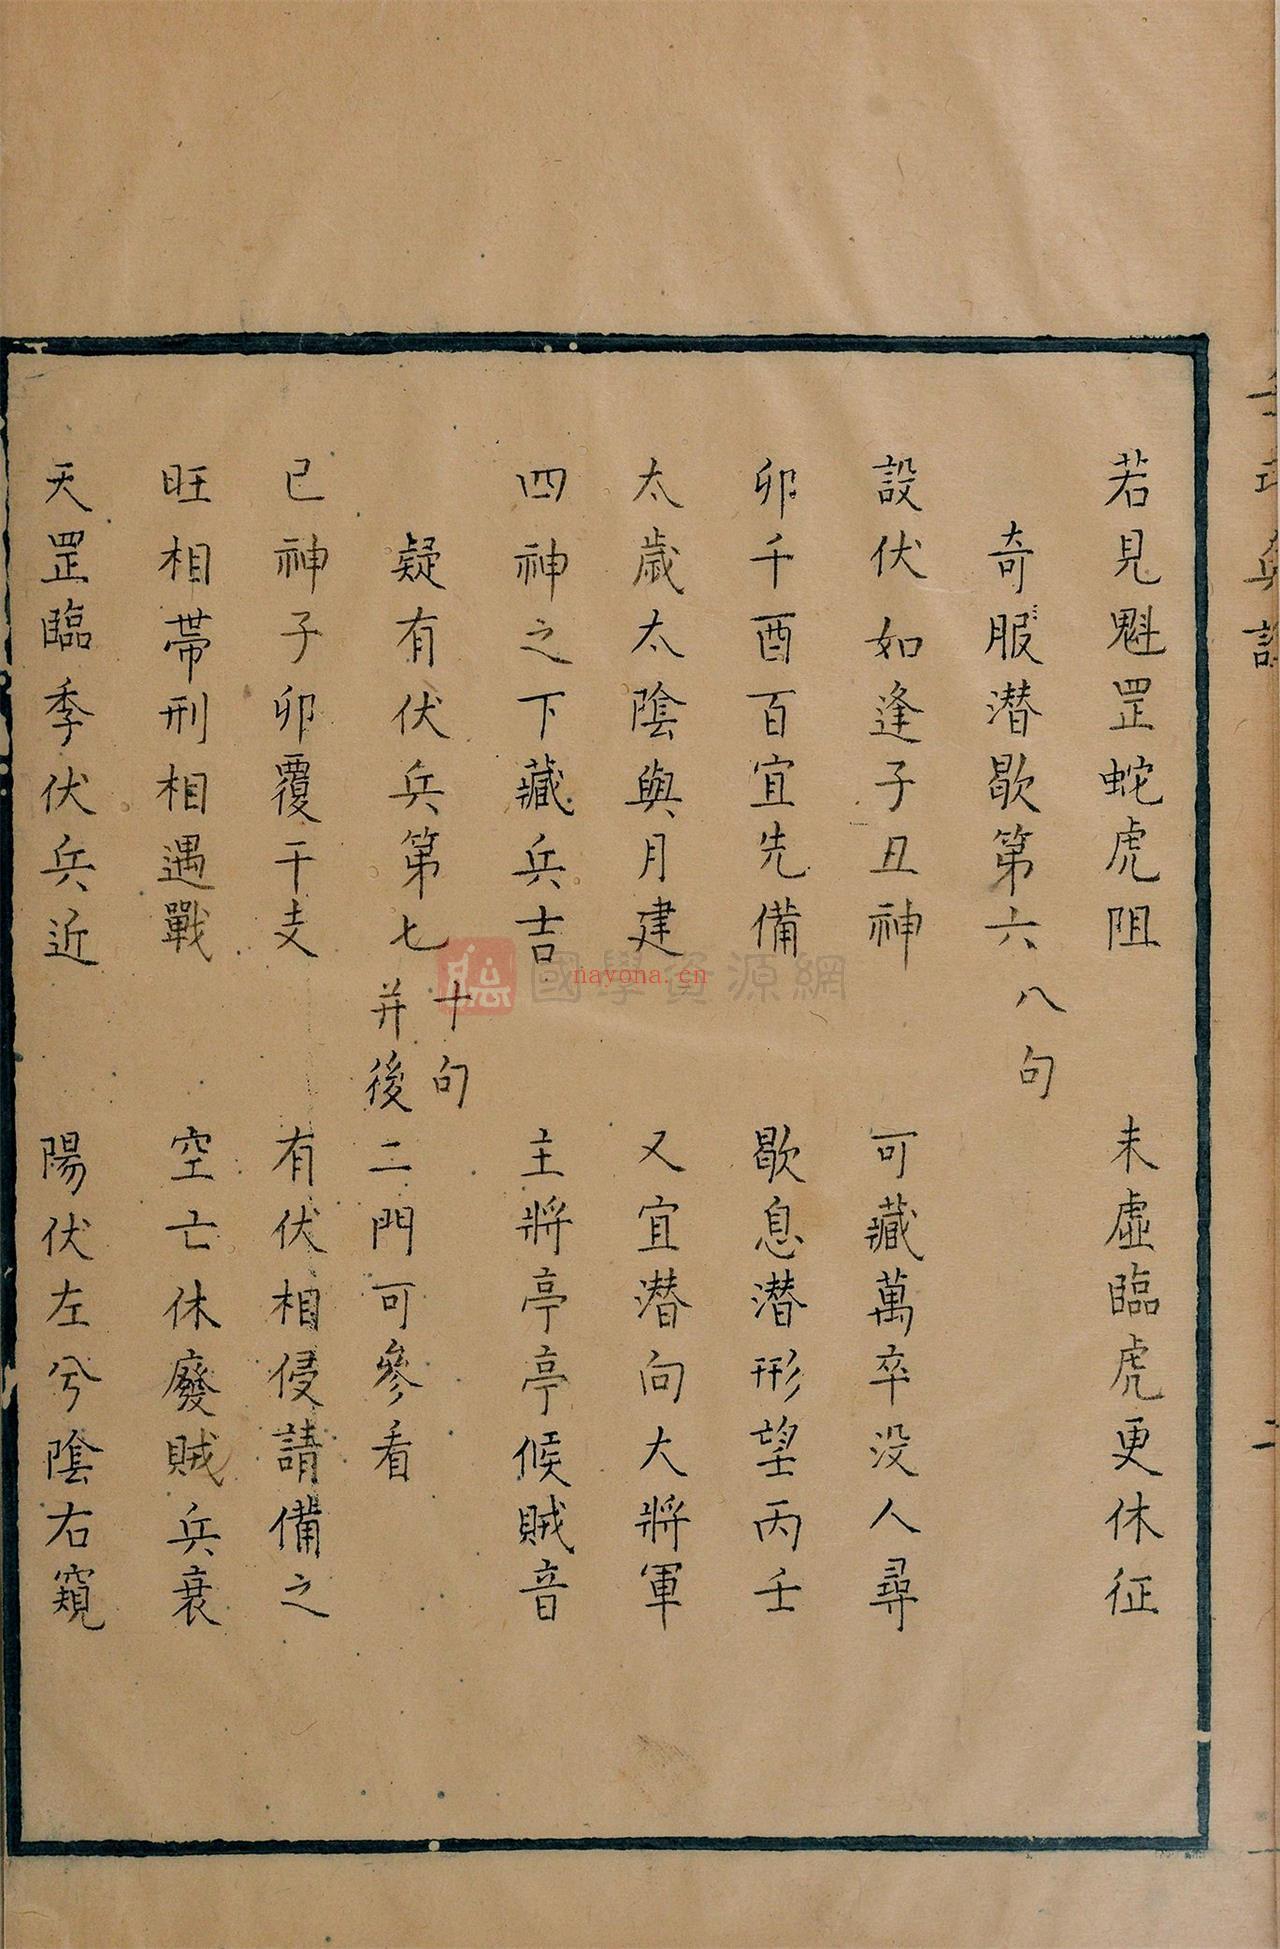 若見魁罡蛇虎阻　未虛臨虎更休征
奇服潜歇第六 八句
設伏如逢子丑神　可藏萬卒没人尋
卯千酉百宜先備　歇息潜形望丙壬
太歲太陰與月建　又宜潜向大將軍
四神之下藏兵吉　主將亭亭候賊音
疑有伏兵第七 十句 并後二門可參看
已神子卯覆干支　有伏相侵請備之
旺相帶刑相遇戰　空亡休廢賊兵衰
天罡臨季伏兵近　陽伏左兮陰右窺
國學資源網
nayona.cn